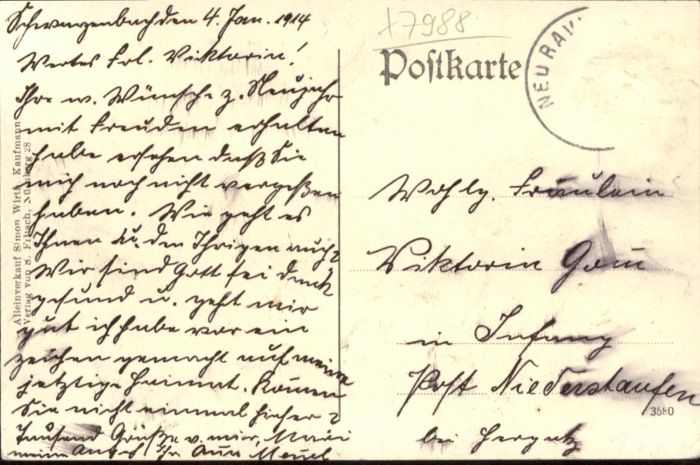 Schwarzenbach den 4. Jan. 1914
Wertes Frl. Viktorin!
Ihre w. Wünsche z. Neujahr
mit Freuden erhalten
habe ersehen daß Sie
mich noch nicht vergeßen
haben. Wie geht es
Ihnen u. den Ihrigen auch?
Wir sind Gott sei dank
gesund u. geht mir
gut ich habe vor ein
zeichen gemacht auf meine
jetzige Heimat. Kommen
Sie nicht einmal hieher?
Tausend Grüße v. mir,
meine
Alleinverkauf Simon Wirth, Kaufmann
Verlag von S. Fritsch, Nürnberg 28
17988
Postkarte
NEURAV
Wohlg. Fräulein
Viktorin
in
Post Niederstaufen
3580
bei Hergatz